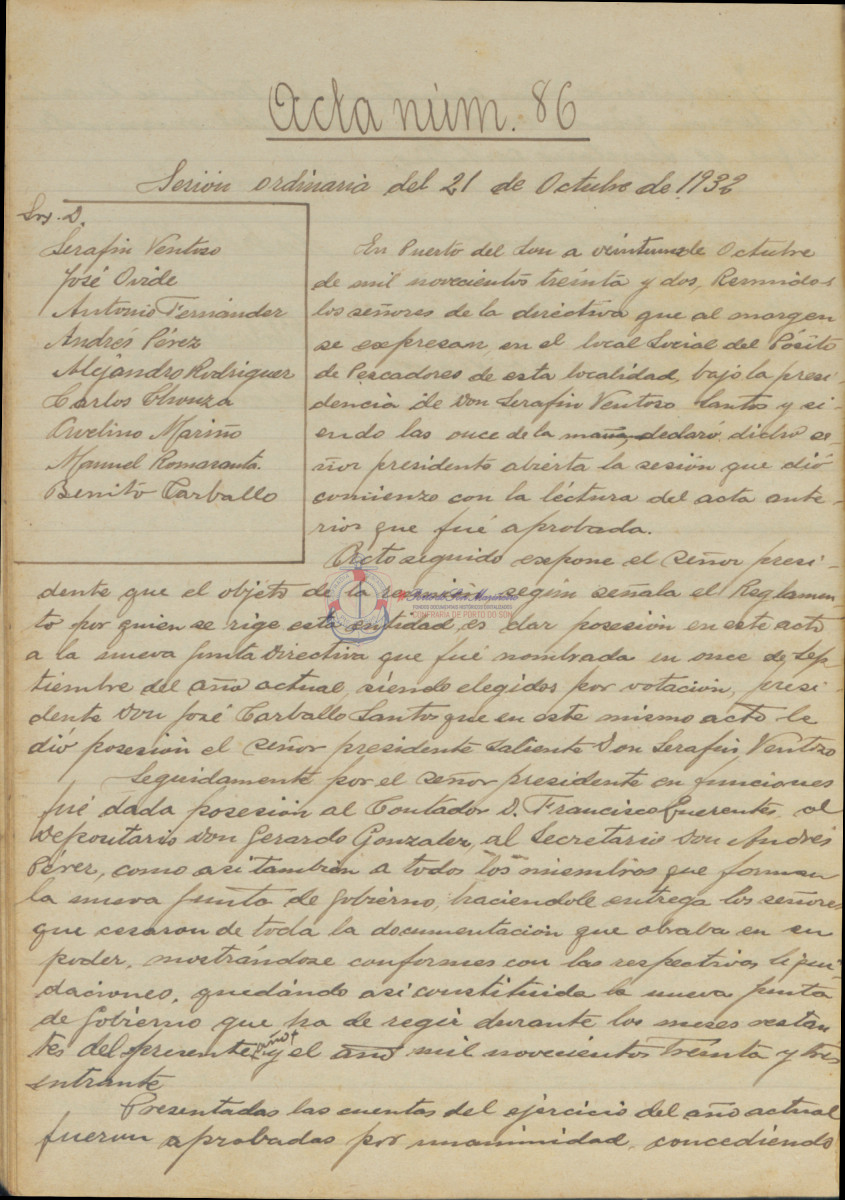 Acta núm. 86
Sesión ordinaria del 21 de Octubre de 1932
Srs. D.
Serafin Ventoso
José Ovide
Antonio Fernández
Andrés Pérez
Alejandro Rodriguez
Carlos Chouza
Avelino Mariño
Manuel Romaranta
Benito Carballo
En Puerto del Son a veintiuno de Octubre
de mil novecientos treinta y dos, Reunidos
los señores de la directiva que al margen
se expresan, en el local Social del Pósito
de Pescadores de esta localidad, bajo la presi-
dencia de Don Serafin Ventoso Santos y si-
endo las once de la maña, declaró dicho se-
ñor presidente abierta la sesión que dió
comienzo con la léctura del acta ante-
rior que fué aprobada.
Acto seguido expone el señor presi-
dente que el objeto de la reunión según señala el Reglamen-
to por quien se rige esta entidad, es dar posesión en este acto
a la nueva Junta Directiva que fué nombrada en once de Sep-
tiembre del año actual, siendo elegidos por votación, presi-
dente Don José Carballo Santos que en este mismo acto le
dió posesión el señor presidente saliente Don Serafin Ventoso
Seguidamente por el señor presidente en funciones
fué dada posesión al Contador D. Francisco al
Depositario Don Gerardo Gonzalez, al Secretario Don Andrés
Pérez, como asi tambien a todos los miembros que forman
la nueva Junta de Gobierno, haciendole entrega los señores
que cesaron de toda la documentación que obraba en su
poder, mostrándose conformes con las respectivas liqui-
daciones, quedándo asi constituida la nueva Junta
de Gobierno que ha de regir durante los meses restan-
tes del presente año y el año mil novecientos Treinta y tres
entrante
Presentadas las cuentas del ejercicio del año actual
fueron aprobadas por unanimidad, concediendo
FONDOS DOCUMENTAIS HISTÓRICOS DIXITALIZADOS
CONFRARÍA DE PORTO DO SON